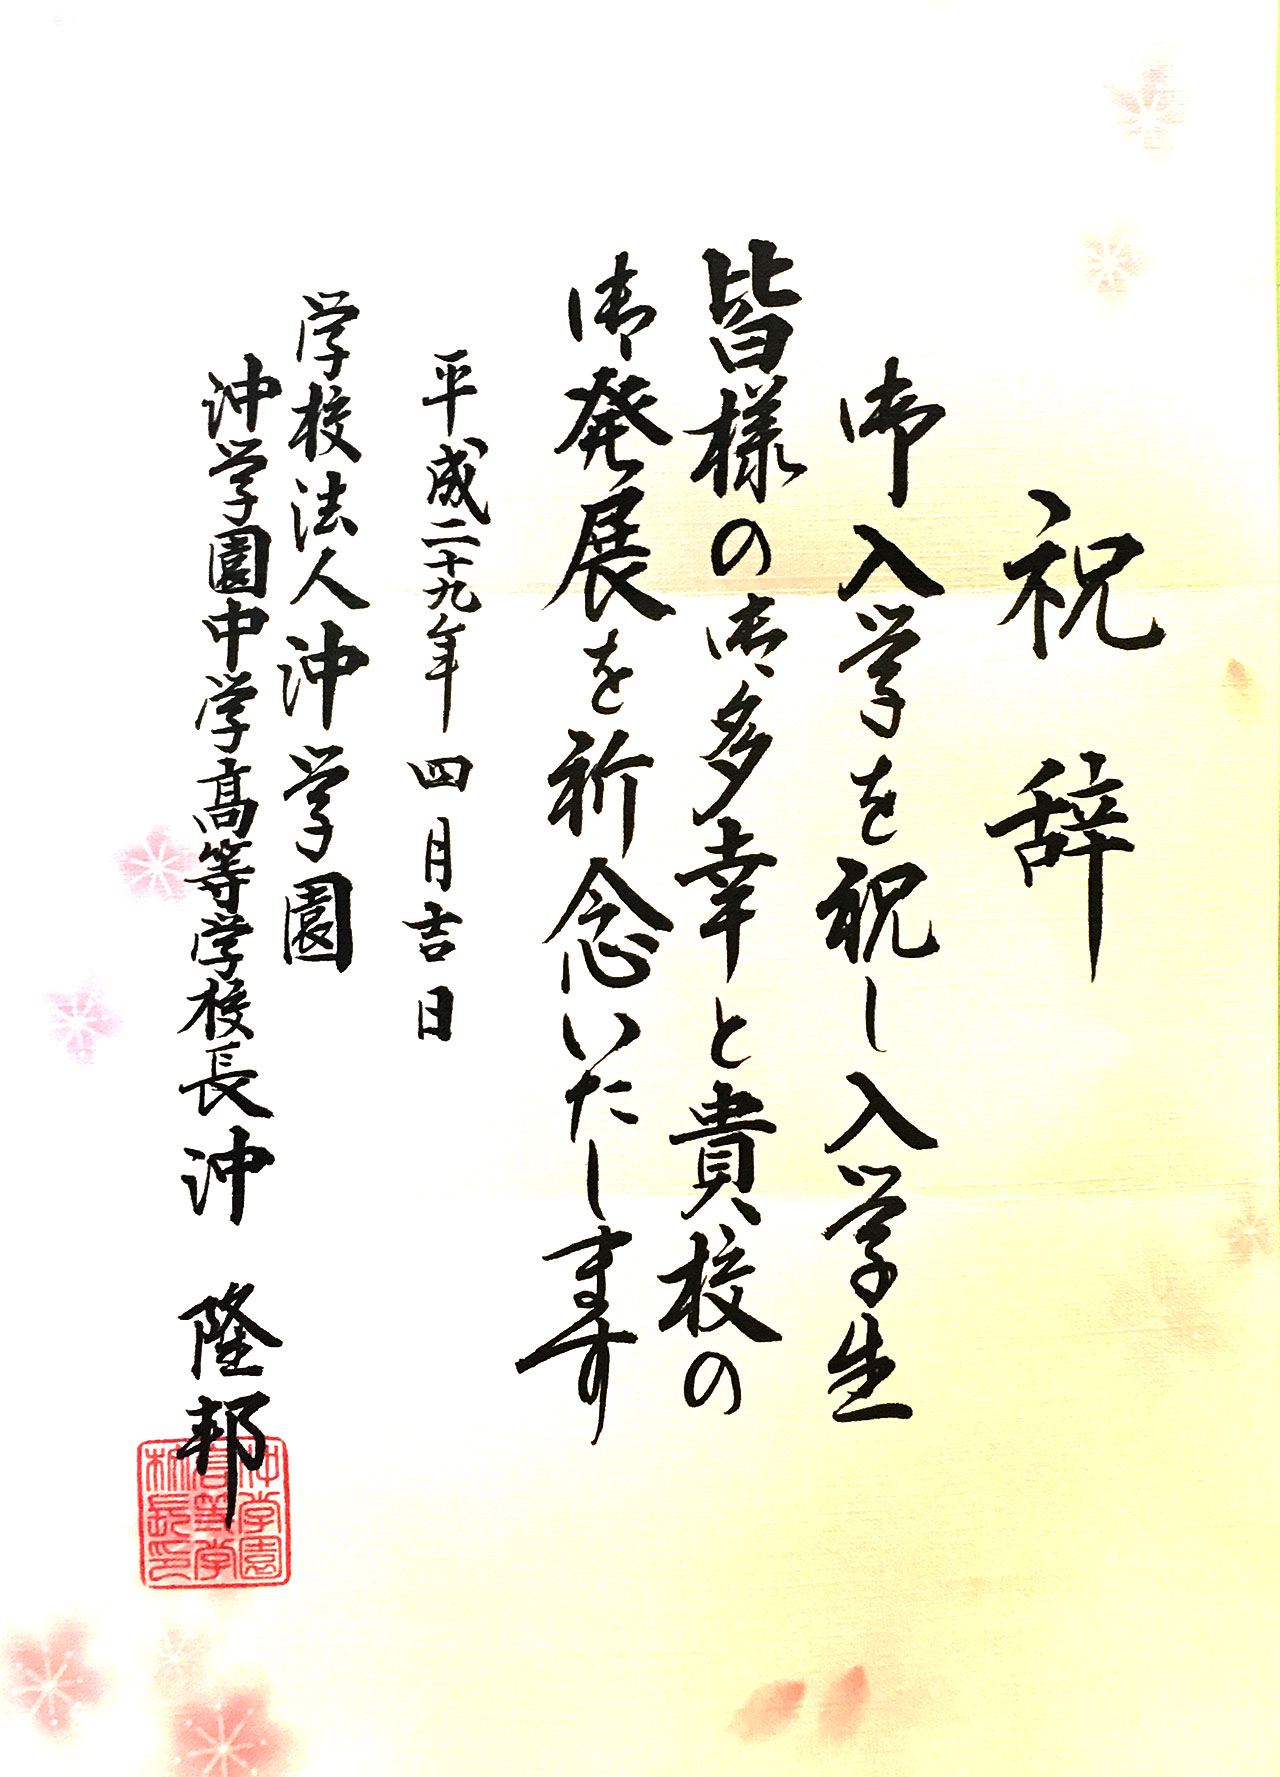 祝辞
御入学を祝し入学生
皆様の御多幸と貴校の
御発展を祈念いたします
平成二十九年四月吉日
学校法人沖学園
沖学園中学高等学校長沖隆邦
沖学園
高等学
校長印